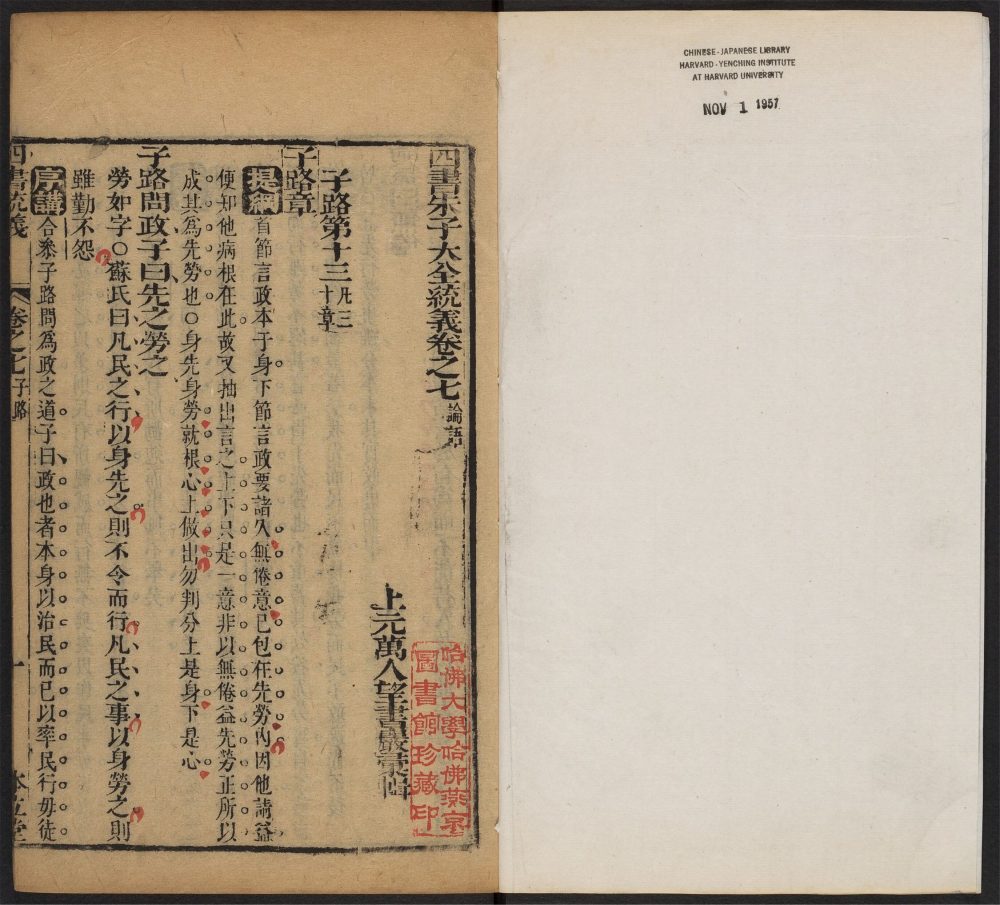 CHINESE-JAPANESE LIBRARY
HARVARD-YENCHING INSTITUTE
AT HARVARD UNIVERSITY
NOV 1 1957
四書朱子大全統義卷之七 論語
上元萬人望書巖彙輯
哈佛大學哈佛燕京
圖書館珍藏印
子路第十三 凡三十章
子路章
提綱 首節言政本于身下節言政要諸久無倦意已包在先勞內因他請益
便知他病根在此故又抽出言之上下只是一意非以無倦益先勞正所以
成其爲先勞也○身先身勞就根心上做出勿判分上是身下是心
子路問政子曰先之勞之
勞如字○蘇氏曰凡民之行以身先之則不令而行凡民之事以身勞之則
雖勤不怨
合叅子路問爲政之道子曰政也者本身以治民而已以率民行毋徒
四書統義 卷之七 子路 一 本立堂